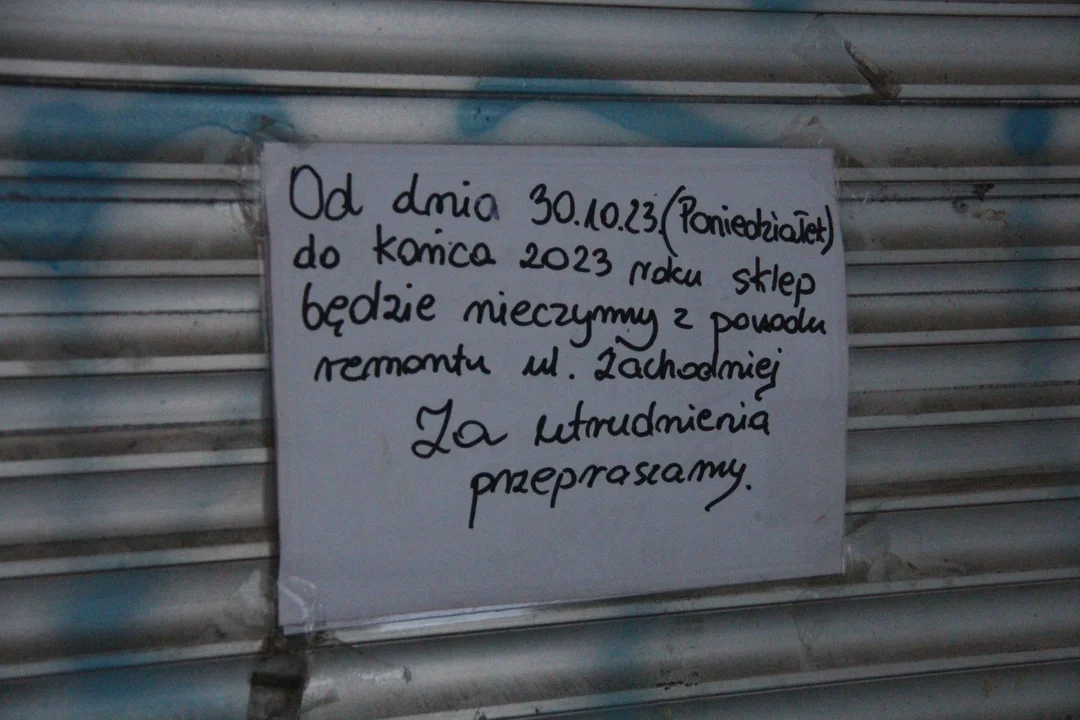 Od dnia 30.10.23.(Poniedziałek)
do końca 2023 roku sklep
będzie nieczynny z powodu
remontu ul. Zachodniej
Za utrudnienia
przepraszamy.